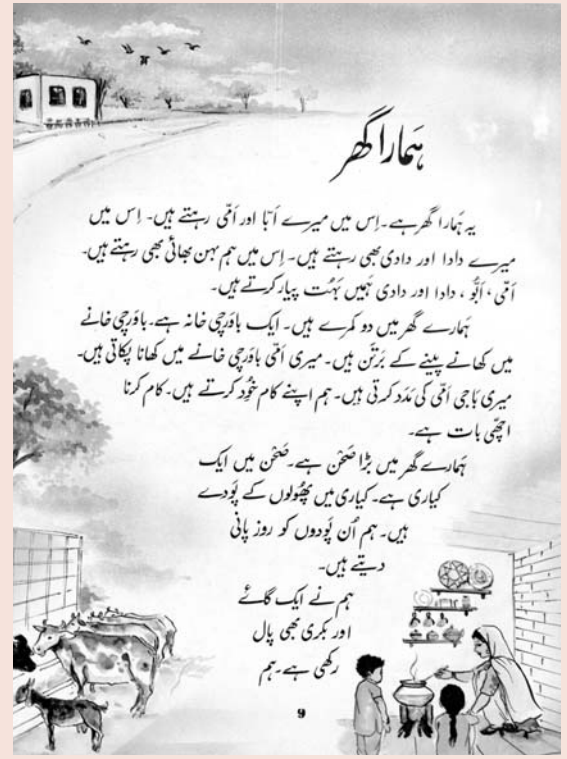 ہَمارا گھر
یہ ہَمارا گھر ہے۔ اِس میں میرے اَبّا اور اَمّی رہتے ہیں۔ اِس میں
میرے دادا اور دادی بھی رہتے ہیں۔ اِس میں ہم بہن بھائی بھی رہتے ہیں۔
اَمّی، اَبُّو، دادا اور دادی ہَمیں بَہُت پیار کرتے ہیں۔
ہَمارے گھر میں دو کمرے ہیں۔ ایک باوَرچی خانہ ہے۔ باوَرچی خانے
میں کھانے پینے کے بَرتَن ہیں۔ میری اَمّی باوَرچی خانے میں کھانا پکاتی ہیں۔
میری بَاجی اَمّی کی مَدَد کرتی ہیں۔ ہم اپنے کام خُود کرتے ہیں۔ کام کرنا
اچھّی بات ہے۔
ہَمارے گھر میں بڑا صَحْن ہے۔ صَحْن میں ایک
کیاری ہے۔ کیاری میں پھُولوں کے پَودے
ہیں۔ ہم اُن پَودوں کو روز پانی
دیتے ہیں۔
ہم نے ایک گائے
اور بکری بھی پال
رکھی ہے۔ ہم
9